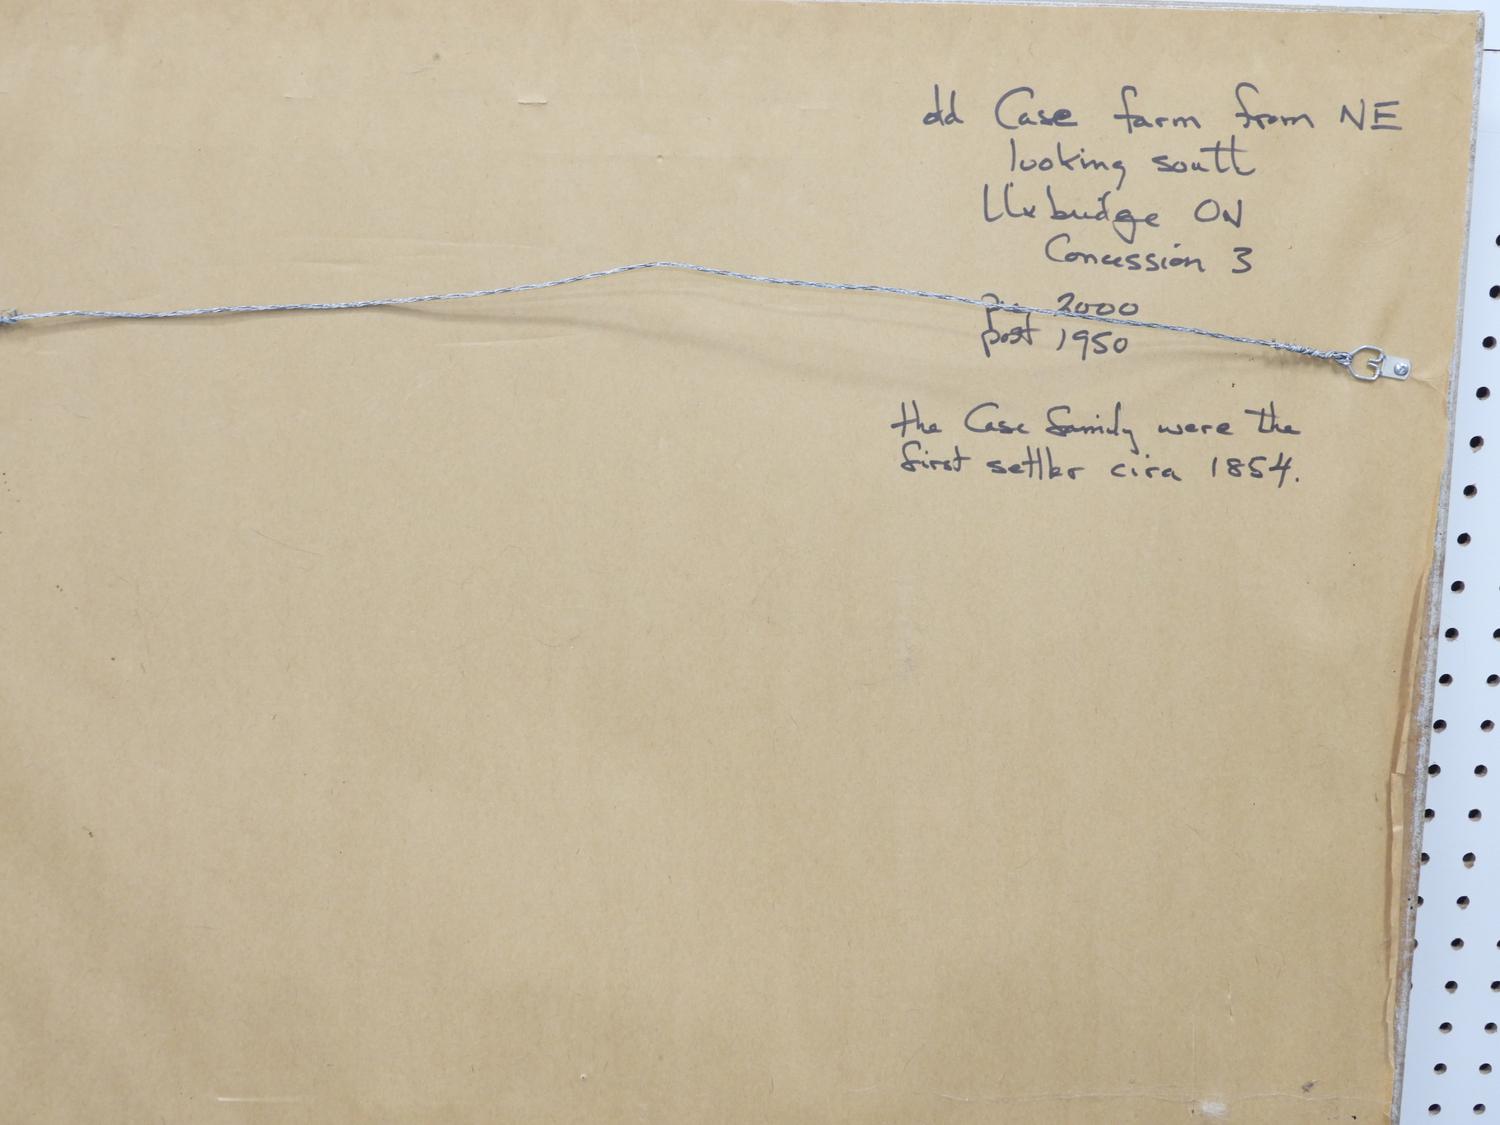 old Case farm from NE
looking south
Uxbridge ON
Concession 3
2000
post 1950
the Case family were the
first settler cira 1854.